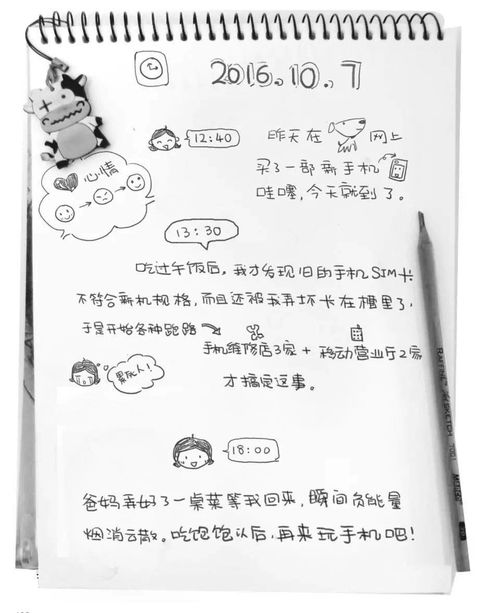 2016.10.7
12:40
昨天在 网上
买了一部新手机
哇噻,今天就到了。
心情
13:30
吃过午饭后,我才发现旧的手机SIM卡
不符合新机规格,而且还被我弄坏卡在槽里了,
于是开始各种跑路
手机维修店3家 + 移动营业厅2家
累死人!
才搞定这事。
18:00
爸妈弄好了一桌菜等我回来,瞬间负能量
烟消云散。吃饱饱以后,再来玩手机吧!